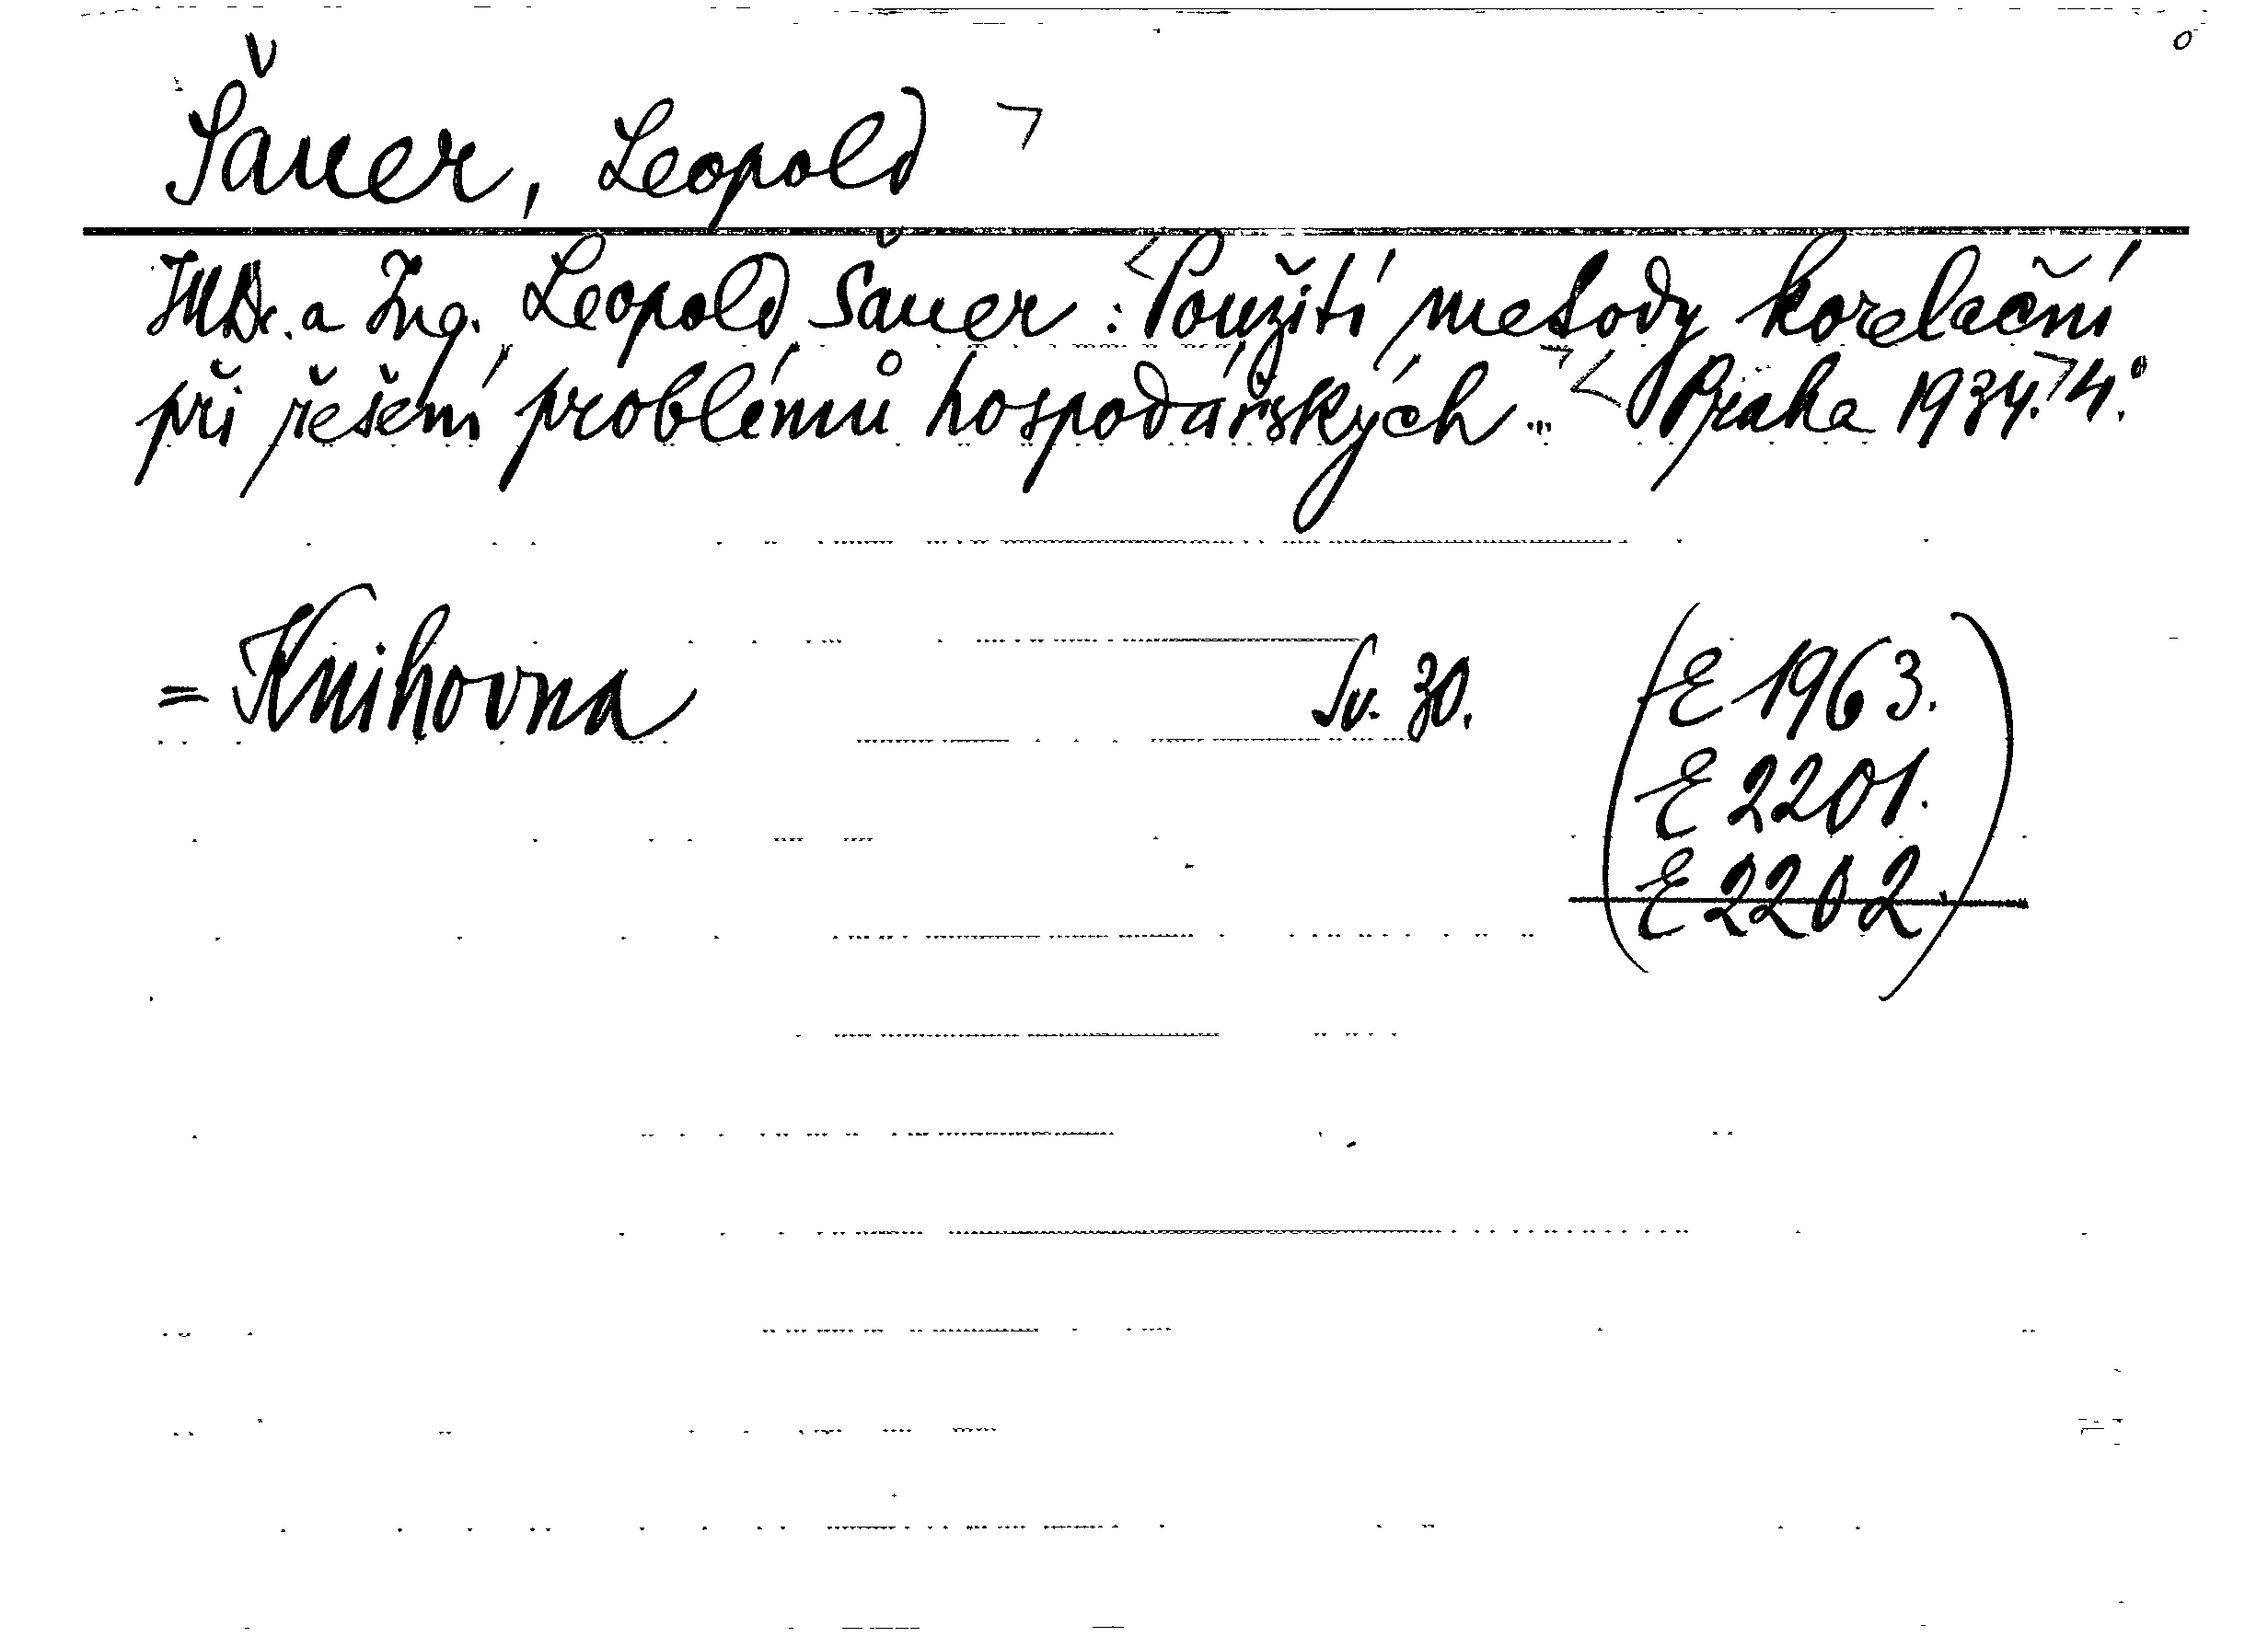 Šauer, Leopold
JUDr. a Ing. Leopold Šauer: Použití metody korelační
při řešení problémů hospodářských... Praka 1934. 4°.
= Knihovna Sv. 30. (E 1963.
E 2201.
E 2202.)